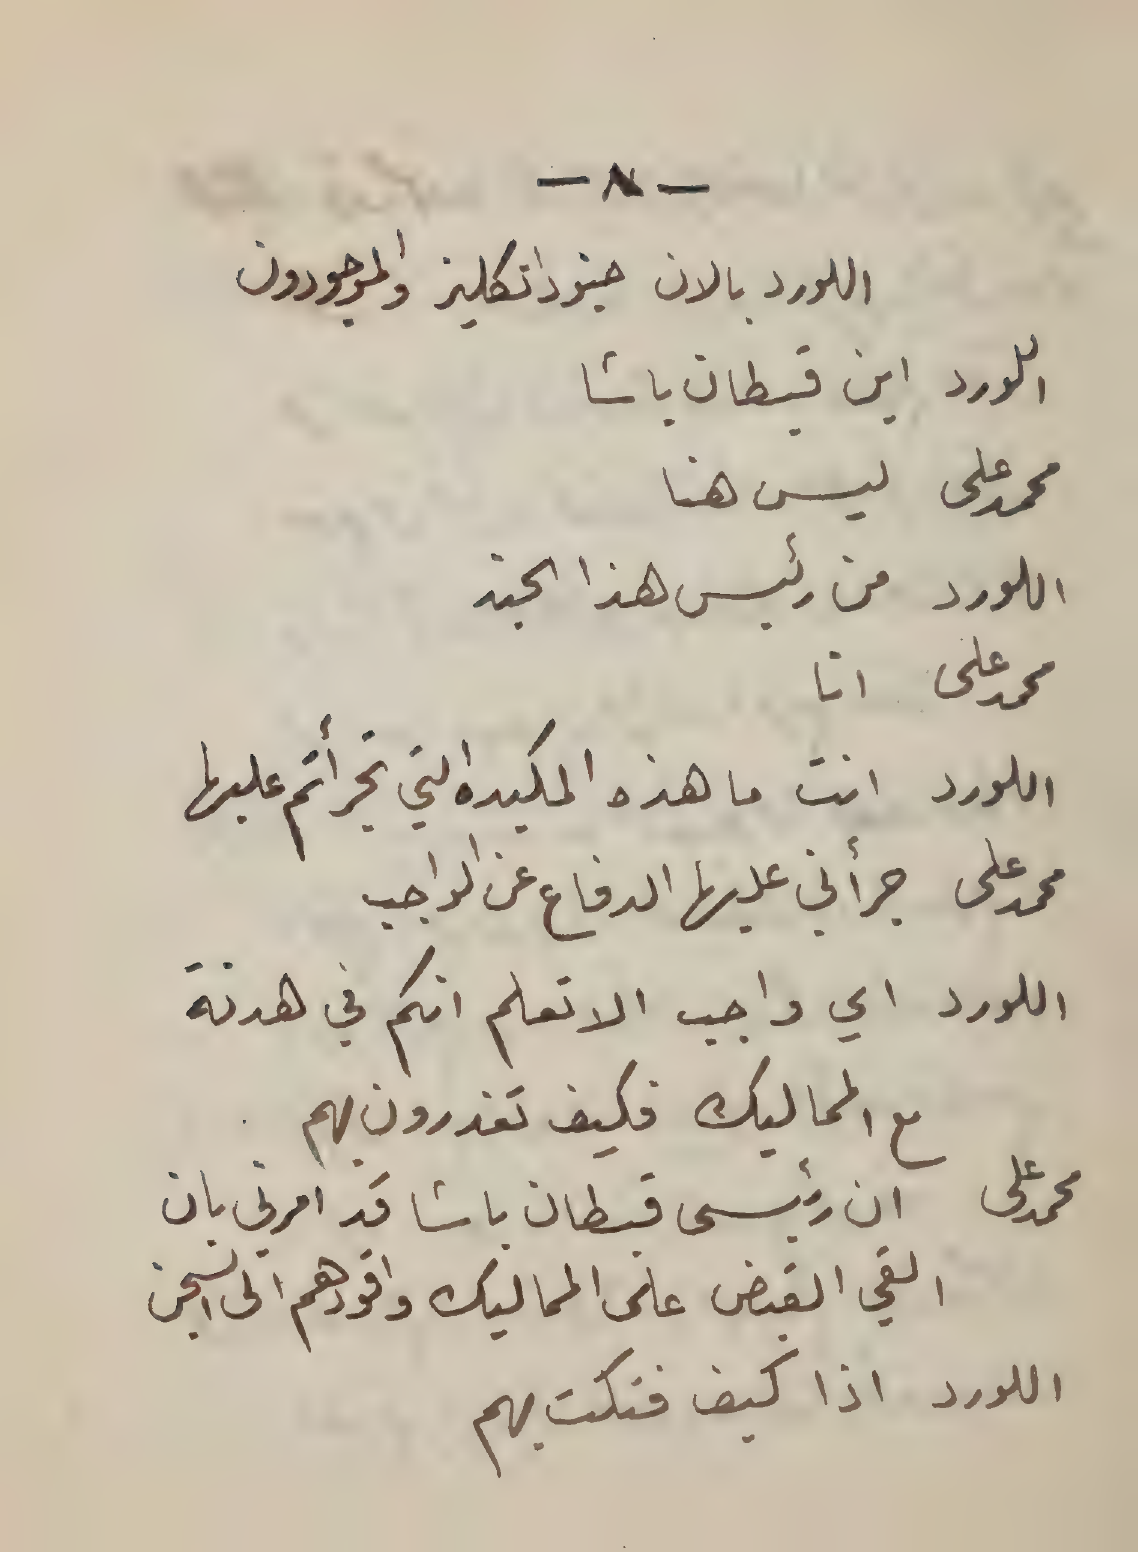 — ٨ —
اللورد بالان جنود انكليز والموجودون
اللورد اين قبطان باشا
محمد علي ليس هنا
اللورد من رئيس هذا الجند
محمد علي انا
اللورد انت ما هذه المكيده التي تجرأتم عليها
محمد علي جرأني عليها الدفاع عن الواجب
اللورد اي واجب الا تعلم انكم في هدنة
مع المماليك فكيف تغدرون بهم
محمد علي ان رئيسى قبطان باشا قد امرني بان
القي القبض على المماليك واقودهم الى السجن
اللورد اذا كيف فتكت بهم